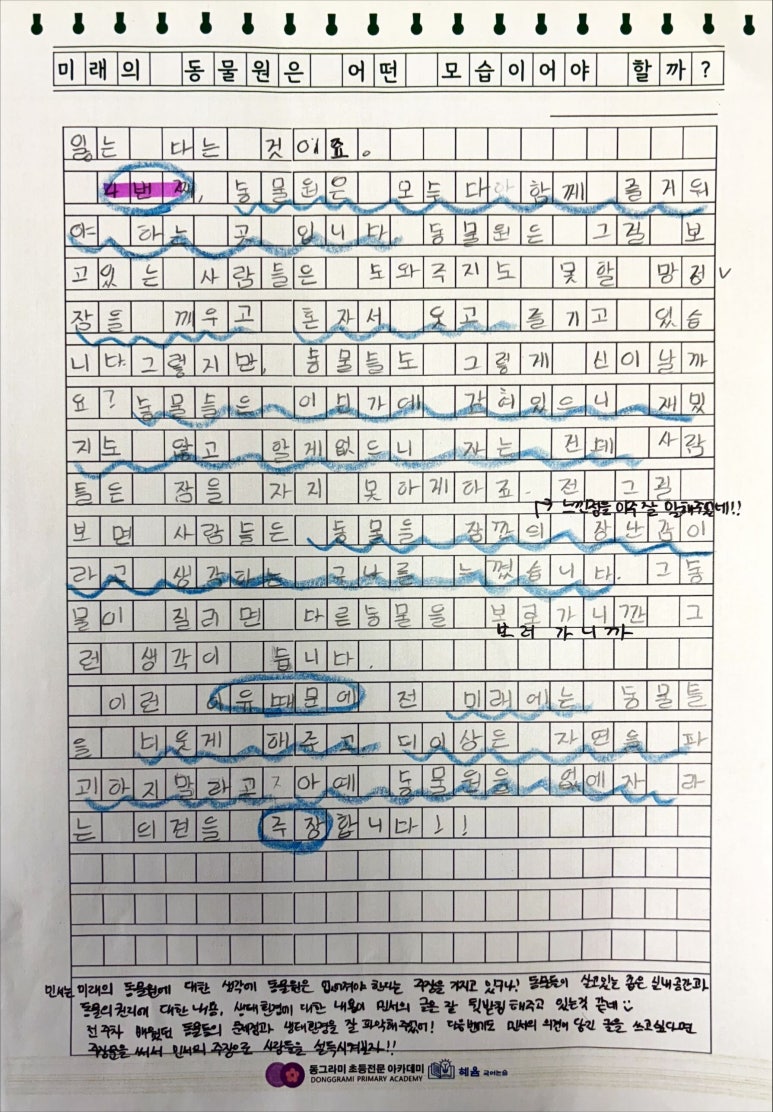 미래의 동물원은 어떤 모습이어야 할까?
잃는 다는 것이죠.
4번째, 동물원은 모두 다 함께 즐거워
야 하는 곳 입니다. 동물원은 그걸 보
고있는 사람들은 도와주지도 못할 망정
잠을 깨우고 혼자서 웃고 즐기고 있습
니다. 그렇지만, 동물들도 그렇게 신이날까
요? 동물들은 이 갇혀있으니 재밌
지도 않고 할게없으니 자는 건데 사람
들은 잠을 자지 못하게하죠. 전 그걸
느낀점을 아주 잘 말해주었네!!
보면 사람들은 동물을 잠깐의 장난감이
라고 생각하는 느꼈습니다. 그동
물이 질리면 다른동물을 보로가니깐 그
보러 가니까
런 생각이 듭니다.
이런 이유때문에 전 미래에는 동물들
을 해주고 더이상은 자연을 파
괴하지말라고 아예 동물원을 없에자 라
는 의견을 주장합니다!!
민서는 미래의 동물원에 대한 생각에 동물원은 없어져야 한다는 주장을 가지고 있구나! 동물들이 살고있는 좁은 실내공간과
동물의 권리에 대한 내용, 생태환경에 대한 내용이 민서의 글을 잘 뒷받침 해주고 있는것 같네
전 주차 배웠던 동물들의 문제점과 생태환경을 잘 파악해주었어! 다음번에도 민서의 의견이 담긴 글을 쓰고싶다면
주장문을 써서 민서의 주장으로 사람들을 설득시켜보자!!
동그라미 초등전문 아카데미
DONGGRAMI PRIMARY ACADEMY
혜윰 국어논술